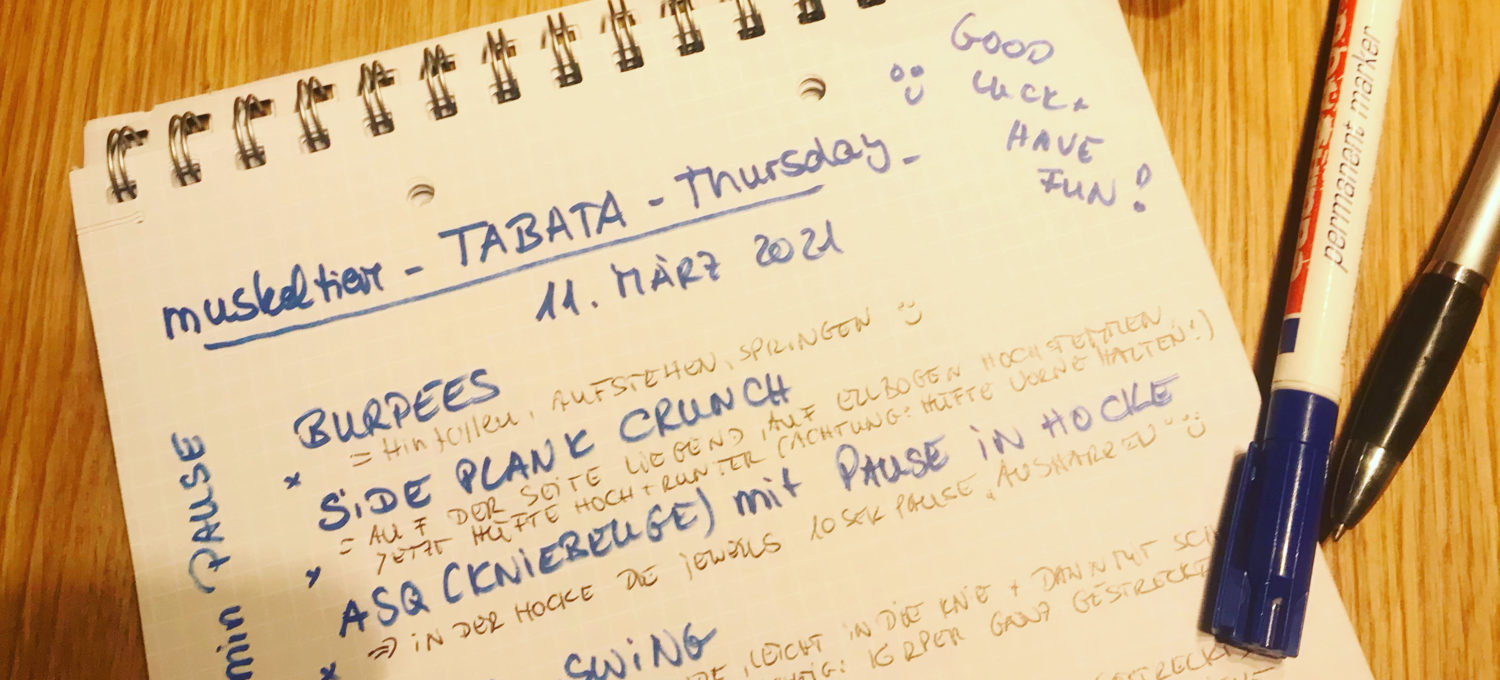 GOOD
LUCK +
HAVE
FUN!
muskeltier - TABATA - Thursday -
11. MÄRZ 2021
BURPEES
= Hinfallen, AUFSTEHEN, SPRINGEN
x SIDE PLANK CRUNCH
= AUF DER SEITE LIEGEND, AUF ELLBOGEN HOCHSTEMMEN
JETZT HÜFTE HOCH + RUNTER (ACHTUNG: HÜFTE VORNE HALTEN!)
x ASQ (KNIEBEUGE) mit PAUSE IN HOCKE
=> IN DER HOCKE DIE JEWEILS 10SEK PAUSE „AUSHARREN"
x SWING
LEICHT IN DIE KNIE + DANN MIT
KÖRPER GANZ GESTRECKT
min PAUSE
permanent marker